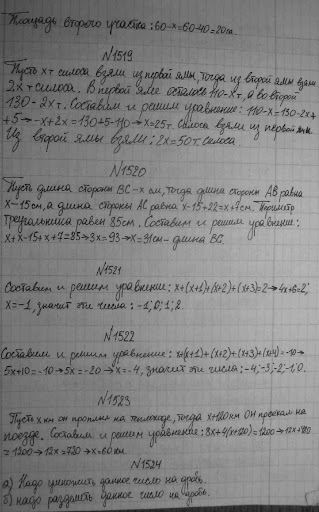 Площадь второго участка: 60-х=60-40=20га.
N1519
Пусть хт силоса взяли из первой ямы, тогда из второй ямы взяли
2хт силоса. В первой яме осталось 110-хт, а во второй
130-2хт. Составим и решим уравнение: 110-х=130-2х+
+5→-х+2х=130+5-110→х=25т. силоса взяли из первой ямы.
Из второй ямы взяли: 2х=50т силоса
N1520
Пусть длина стороны ВС-х см, тогда длина стороны АВ равна
х-15см, а длина стороны АС равна х-15+22=х+7см. Периметр
треугольника равен 85см. Составим и решим уравнение:
х+х-15+х+7=85→3х=93→х=31см-длина ВС.
N1521
Составим и решим уравнение: х+(х+1)+(х+2)+(х+3)=2→4х+6=2;
х=-1, значит эти числа: -1;0;1;2.
N1522
Составим и решим уравнение: х+(х+1)+(х+2)+(х+3)+(х+4)=-10→
5х+10=-10→5х=-20→х=-4, значит эти числа:-4;-3;-2;-1;0.
N1523
Пусть х км он проплыл на теплоходе, тогда х+120км он проехал на
поезде. Составим и решим уравнение: 8х+4(х+120)=1200→12х+480
=1200→12х=720→х=60км.
N1524
а) Надо умножить данное число на дробь.
б) надо разделить данное число на дробь.